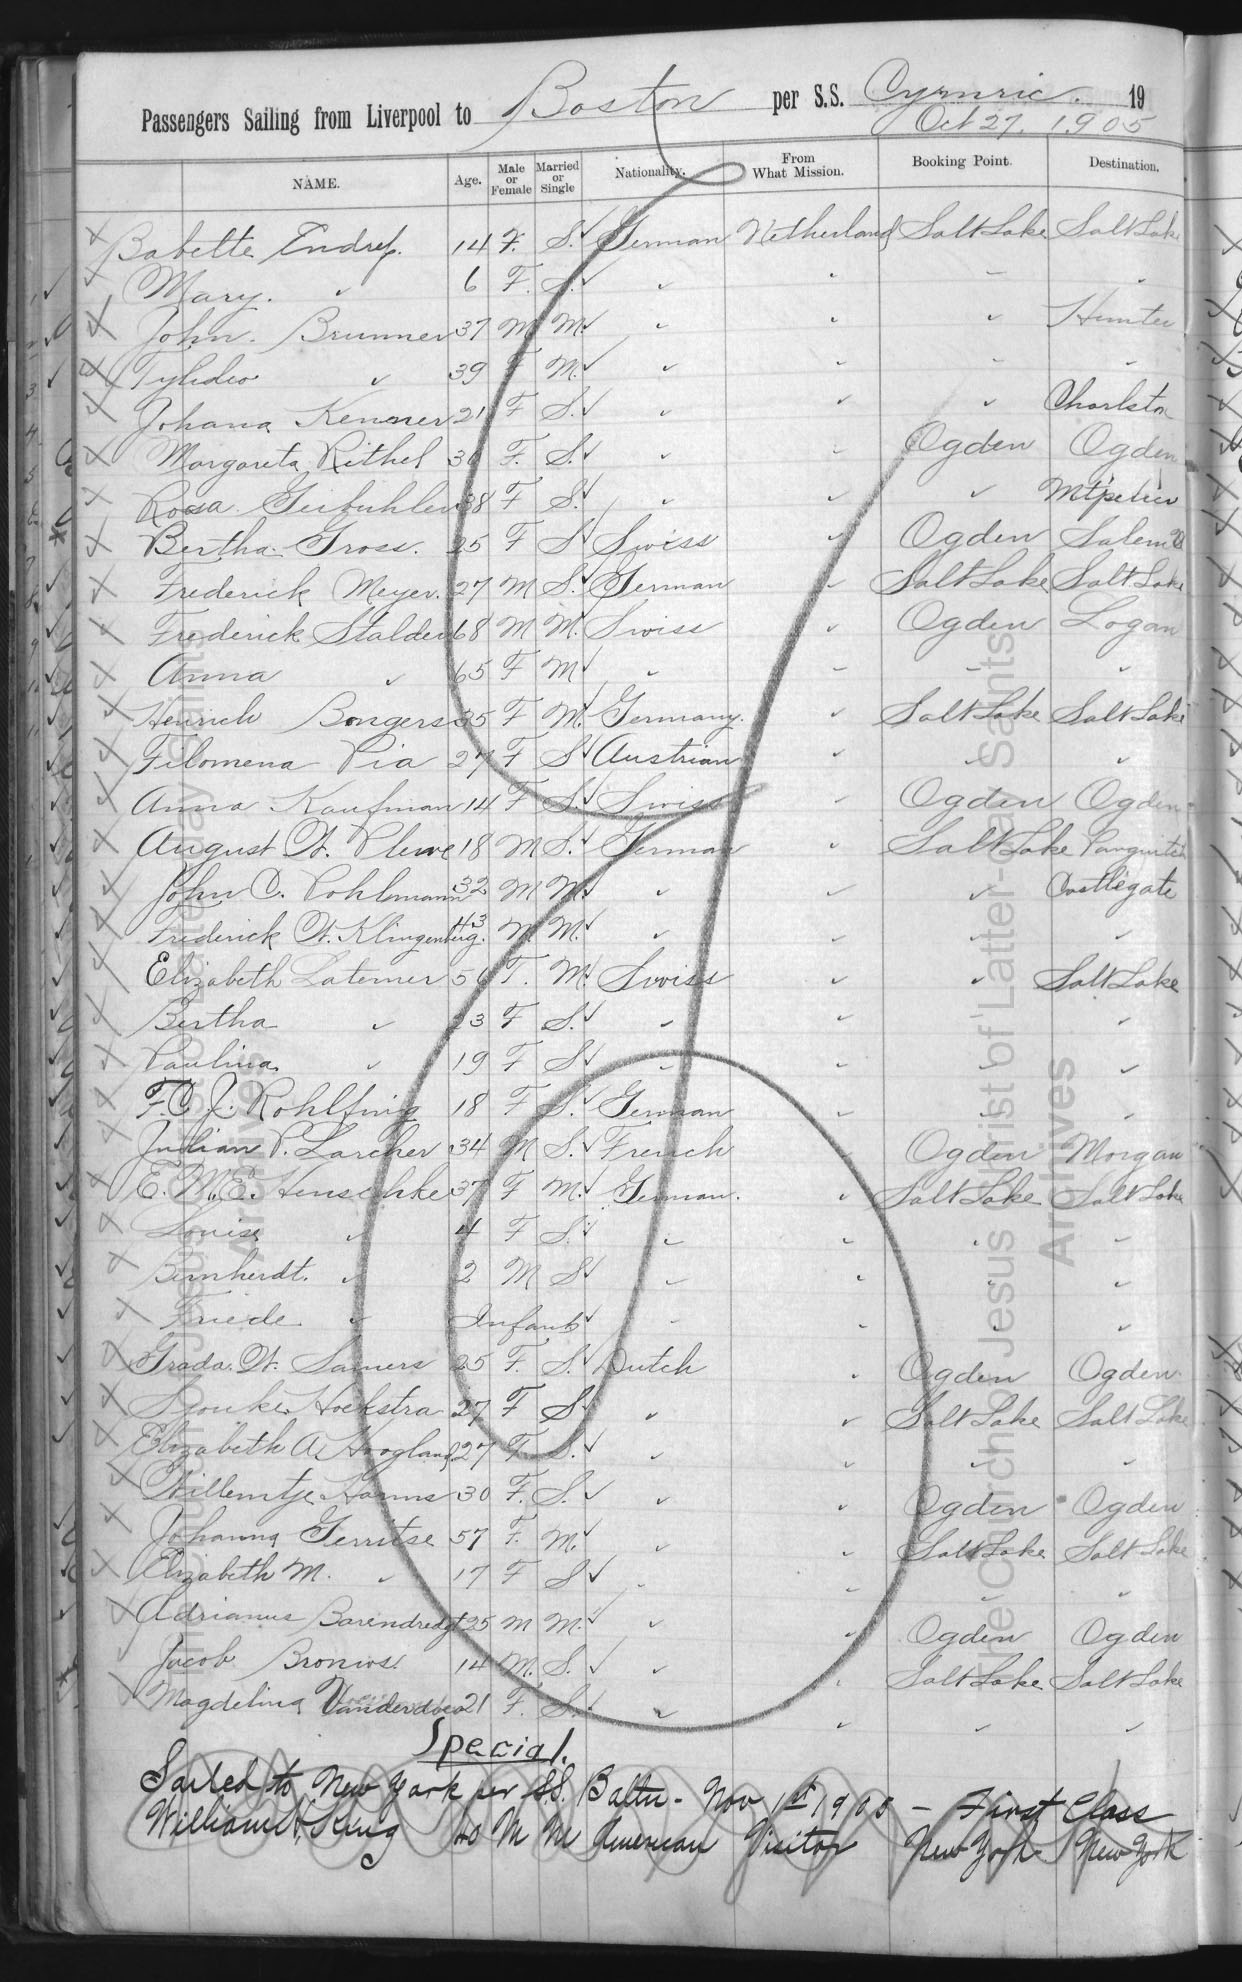 Passengers Sailing from Liverpool to Boston per S.S. Cymric. 19
Oct 27, 1905
NAME. Age. Male or Female Married or Single Nationality. From What Mission. Booking Point. Destination.
Babette 14 F. S. German Netherlands Salt Lake Salt Lake
Mary. " 6 F. S. " " " "
John. Brunner 37 M M. " " " Hunter
" 39 F M. " " " "
Johana Kenner 21 F S. " " " Charlston
Margareta Rithel F. S. " " Ogden Ogden
Rosa 38 F S. " " "
Bertha Gross. 25 F S Swiss " Ogden Salem
Frederick Meyer. 27 M S. German " Salt Lake Salt Lake
Frederick Stalder 68 M M. Swiss " Ogden Logan
Anna " 65 F M " " " "
Henrich Bongers 35 F M. Germany. " Salt Lake Salt Lake
Filomena Pia 27 F S Austrian " " "
Anna Kaufman 14 F S. Swiss " Ogden Ogden
August W. 18 M S. German " Salt Lake Panguitch
John C. Pohlmann 32 M M. " " " Castlegate
Frederick W. Klingenberg. 43 M M. " " " "
Elizabeth Laterner F. M. Swiss " " Salt Lake
Bertha " 23 F S. " " " "
Paulina " 19 F S " " " "
F.C.J. Rohlfing 18 F S. German " " "
Julian P. Larcher 34 M S. French " Ogden Morgan
E. M. E. Henschke 37 F M. German. " Salt Lake Salt Lake
Louise " 4 F S. " " " "
Bernherdt. " 2 M S " " " "
Friede " Infant " " " "
Grada. W. 25 F. S. Dutch " Ogden Ogden
Hoekstra 27 F S " " Salt Lake Salt Lake
Elizabeth A. Hoogland 27 F. S. " " " "
Willemtje Harms 30 F. S. " " Ogden Ogden
Johanna Gerritse 57 F. M. " " Salt Lake Salt Lake
Elizabeth M. " 17 F S " " " "
Adrianus Barendregt 25 M M. " " Ogden Ogden
Jacob 14 M. S. " " Salt Lake Salt Lake
Magdelina 21 F. S. " " " "
Special.
Sailed to New York per SS. Baltic - Nov 1st 1905 - First Class
William H. King 40 M M American Visitor New York New York
The Church of Jesus Christ of Latter-day Saints
Archives
The Church of Jesus Christ of Latter-day Saints
Archives